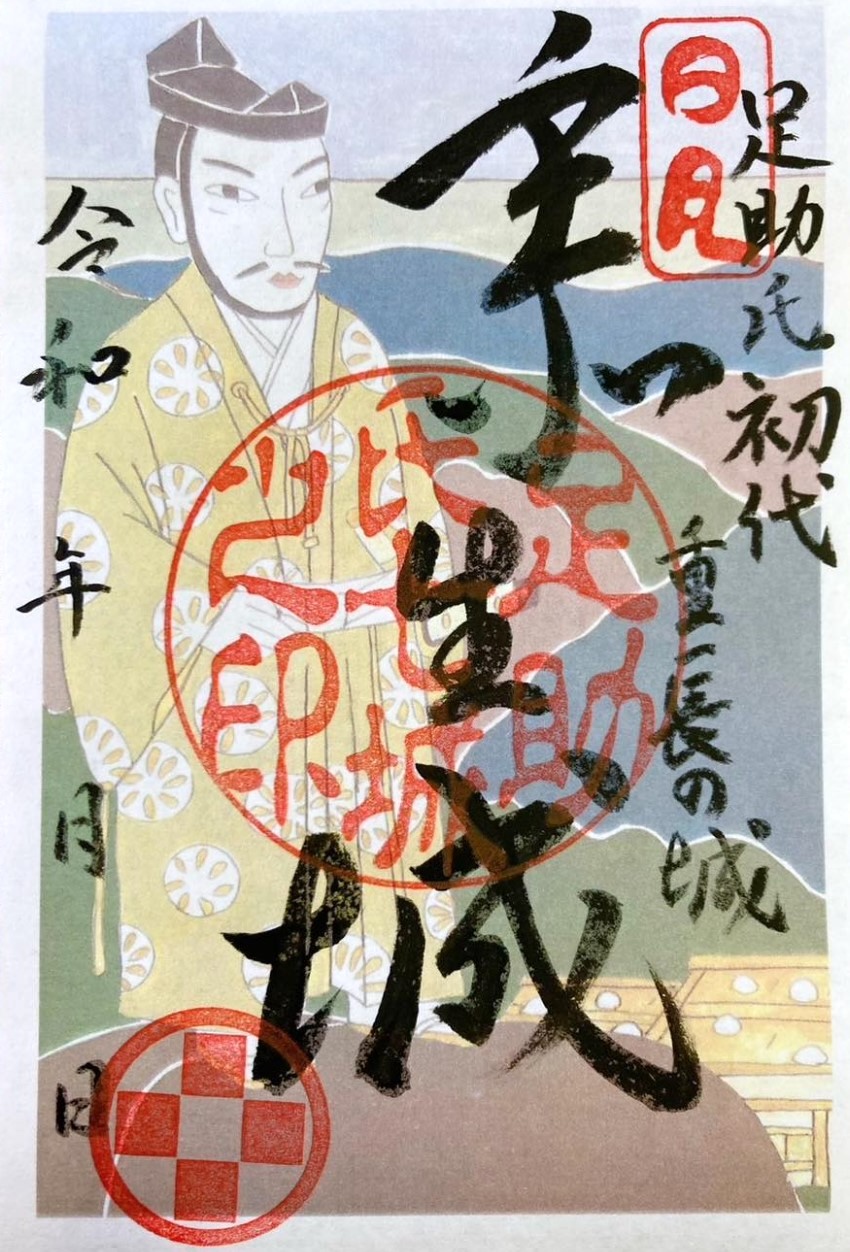 足助氏初代
重長の城
日月
黍生城
足助
氏七城
之印
令和 年 月 日